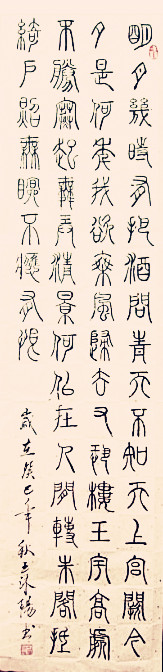 明月幾時有把酒問青天不知天上宮闕今
夕是何年我欲乘風歸去又恐樓玉宇高處
不勝寒起舞弄清影何似在人間轉朱閣低
綺戶照無眠不應有恨
歲在癸巳年秋書